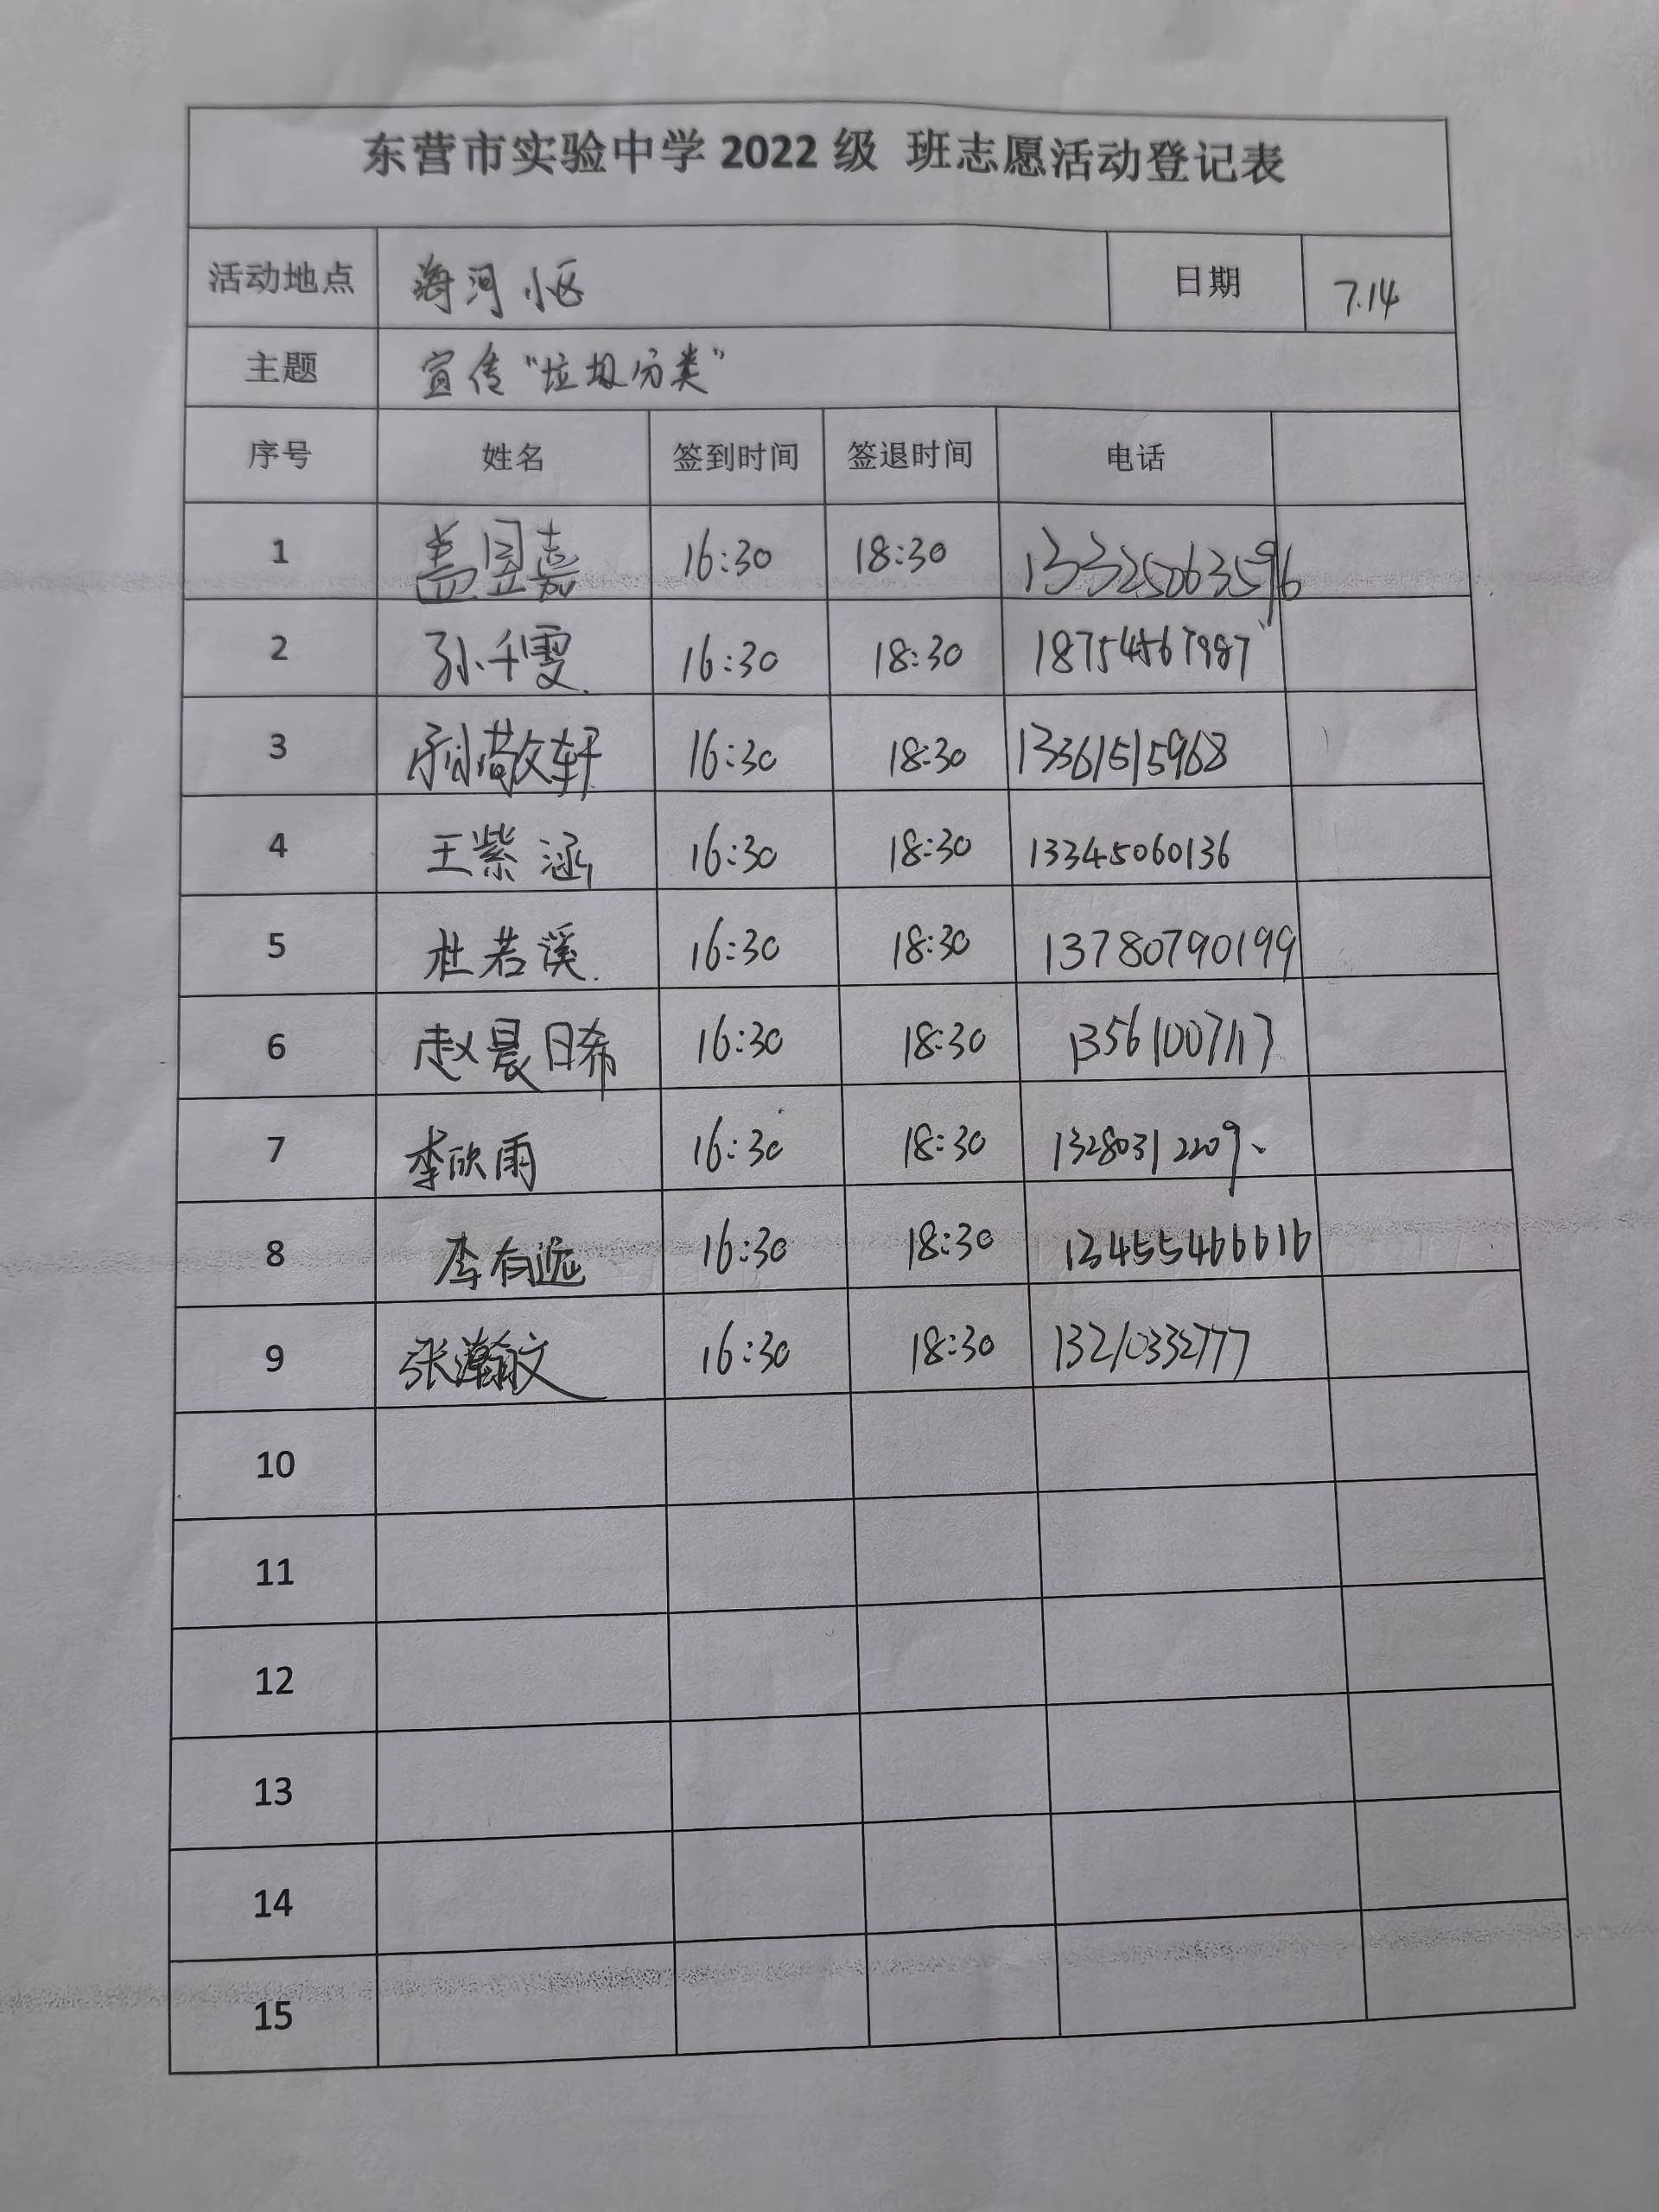 东营市实验中学 2022 级 班志愿活动登记表
活动地点 海河小区 日期 7.14
主题 宣传“垃圾分类”
序号 姓名 签到时间 签退时间 电话
1 盖昱嘉 16:30 18:30 13325063596
2 孙千雯 16:30 18:30 18754567987
3 孙敬轩 16:30 18:30 13361515968
4 王紫涵 16:30 18:30 13345060136
5 杜若溪 16:30 18:30 13780790199
6 赵晨晞 16:30 18:30 13561007117
7 李欣雨 16:30 18:30 13280312209
8 李有远 16:30 18:30 13455466616
9 张瀚文 16:30 18:30 13210332777
10
11
12
13
14
15